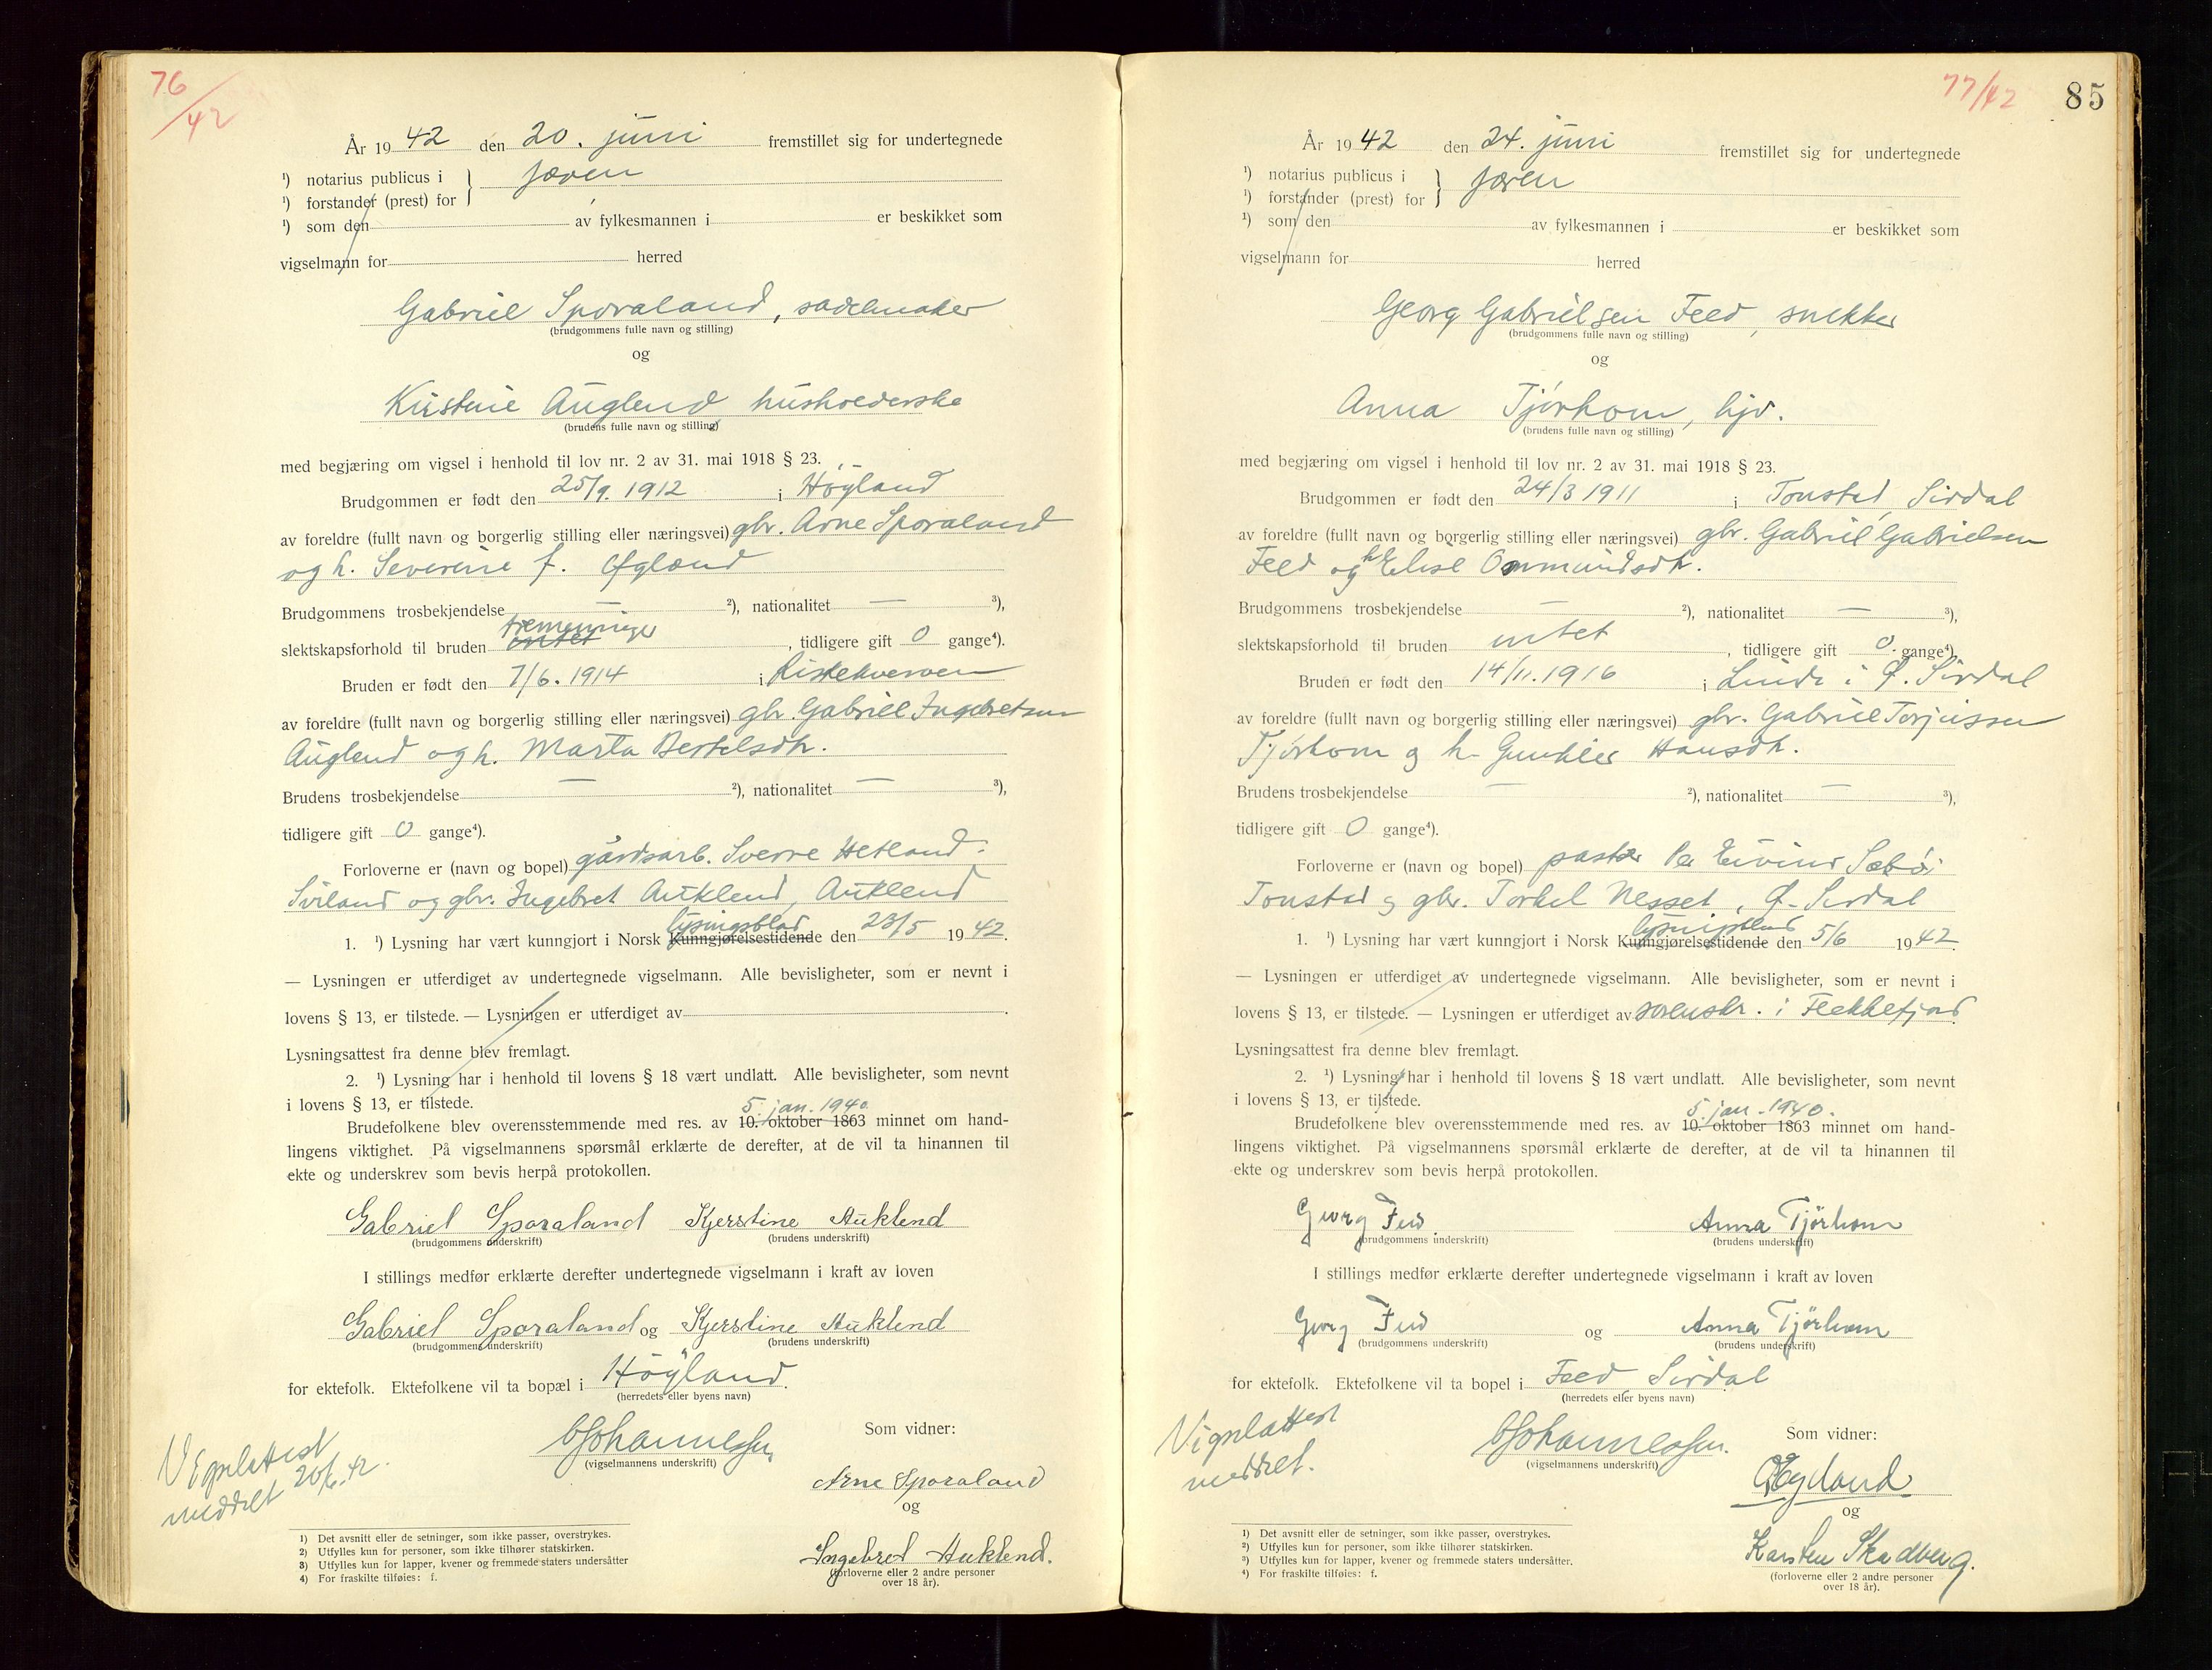 76/42
År 1942 den 20. juni fremstillet sig for undertegnede
¹) notarius publicus i } Jæren
¹) forstander (prest) for
¹) som den av fylkesmannen i er beskikket som
vigselmann for herred
Gabriel Sporaland, sadelmaker
(brudgommens fulle navn og stilling)
og
Kirstine Auglend husholderske
(brudens fulle navn og stilling)
med begjæring om vigsel i henhold til lov nr. 2 av 31. mai 1918 § 23.
Brudgommen er født den 25/9. 1912 i Høyland
av foreldre (fullt navn og borgerlig stilling eller næringsvei) gbr. Arne Sporaland
og h. Severine f. Øglænd
Brudgommens trosbekjendelse — ²), nationalitet — ³),
tremenninger
slektskapsforhold til bruden intet, tidligere gift 0 gange⁴).
Bruden er født den 7/6. 1914 i
av foreldre (fullt navn og borgerlig stilling eller næringsvei) gbr. Gabriel Ingebretsen
Auglend og h. Marta Bertelsdtr.
Brudens trosbekjendelse — ²), nationalitet — ³),
tidligere gift 0 gange⁴).
Forloverne er (navn og bopel) gårdsarb. Sverre Hetland.
Sviland og gbr. Ingebret Auklend, Auklend
lysningsblad
1. ¹) Lysning har vært kunngjort i Norsk Kunngjørelsestidende den 23/5 1942.
— Lysningen er utferdiget av undertegnede vigselmann. Alle bevisligheter, som er nevnt i
lovens § 13, er tilstede. — Lysningen er utferdiget av .
Lysningsattest fra denne blev fremlagt.
2. ¹) Lysning har i henhold til lovens § 18 vært undlatt. Alle bevisligheter, som nevnt
i lovens § 13, er tilstede.
5. jan. 1940.
Brudefolkene blev overensstemmende med res. av 10. oktober 1863 minnet om hand-
lingens viktighet. På vigselmannens spørsmål erklærte de derefter, at de vil ta hinannen til
ekte og underskrev som bevis herpå protokollen.
Gabriel Sporaland Kjerstine Auklend
(brudgommens underskrift) (brudens underskrift)
I stillings medfør erklærte derefter undertegnede vigselmann i kraft av loven
Gabriel Sporaland og Kjerstine Auklend
(brudgommens underskrift) (brudens underskrift)
for ektefolk. Ektefolkene vil ta bopæl i Höyland.
(herredets eller byens navn)
Vigselattest
meddelt 20/6.42.
Johannessen
(vigselmannens underskrift)
Som vidner:
Arne Sporaland
og
Ingebret Auklend.
(forloverne eller 2 andre personer
over 18 år).
1) Det avsnitt eller de setninger, som ikke passer, overstrykes.
2) Utfylles kun for personer, som ikke tilhører statskirken.
3) Utfylles kun for lapper, kvener og fremmede staters undersåtter
4) For fraskilte tilføies: f.
77/42 85
År 1942 den 24. juni fremstillet sig for undertegnede
¹) notarius publicus i } Jæren
¹) forstander (prest) for
¹) som den av fylkesmannen i er beskikket som
vigselmann for herred
Georg Gabrielsen Feed, snekker
(brudgommens fulle navn og stilling)
og
Anna Tjørhom, hjv.
(brudens fulle navn og stilling)
med begjæring om vigsel i henhold til lov nr. 2 av 31. mai 1918 § 23.
Brudgommen er født den 24/3 1911 i Tonstad, Sirdal
av foreldre (fullt navn og borgerlig stilling eller næringsvei) gbr. Gabriel Gabrielsen
Feed og h. Elise Ommundsdtr.
Brudgommens trosbekjendelse — ²), nationalitet — ³),
slektskapsforhold til bruden intet, tidligere gift 0. gange⁴).
Bruden er født den 14/11. 1916 i Linde i Ø. Sirdal
av foreldre (fullt navn og borgerlig stilling eller næringsvei) gbr. Gabriel Torjussen
Tjørhom og h. Gunhild Hansdtr.
Brudens trosbekjendelse — ²), nationalitet — ³),
tidligere gift 0 gange⁴).
Forloverne er (navn og bopel) pastor Per Eivind Sæbø
Tonstad og gbr. Torkel Nesset, Ø. Sirdal
lysningsblad
1. ¹) Lysning har vært kunngjort i Norsk Kunngjørelsestidende den 5/6 1942.
— Lysningen er utferdiget av undertegnede vigselmann. Alle bevisligheter, som er nevnt i
lovens § 13, er tilstede. — Lysningen er utferdiget av sorenskr. i Flekkefjord
Lysningsattest fra denne blev fremlagt.
2. ¹) Lysning har i henhold til lovens § 18 vært undlatt. Alle bevisligheter, som nevnt
i lovens § 13, er tilstede.
5. jan. 1940.
Brudefolkene blev overensstemmende med res. av 10. oktober 1863 minnet om hand-
lingens viktighet. På vigselmannens spørsmål erklærte de derefter, at de vil ta hinannen til
ekte og underskrev som bevis herpå protokollen.
Georg Feed Anna Tjørhom
(brudgommens underskrift) (brudens underskrift)
I stillings medfør erklærte derefter undertegnede vigselmann i kraft av loven
Georg Feed og Anna Tjørhom
(brudgommens underskrift) (brudens underskrift)
for ektefolk. Ektefolkene vil ta bopel i Feed, Sirdal
(herredets eller byens navn)
Vigselattest
meddelt.
Johannessen.
(vigselmannens underskrift)
Som vidner:
og
Karsten Skadberg.
(forloverne eller 2 andre personer
over 18 år).
1) Det avsnitt eller de setninger, som ikke passer, overstrykes.
2) Utfylles kun for personer, som ikke tilhører statskirken.
3) Utfylles kun for lapper, kvener og fremmede staters undersåtter.
4) For fraskilte tilføies: f.